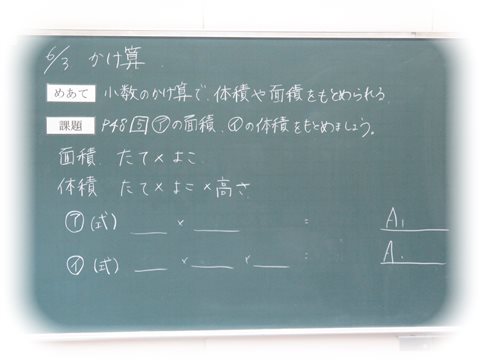 6/3 かけ算
めあて 小数のかけ算で、体積や面積をもとめられる
課題 P48 5 ㋐の面積、㋑の体積をもとめましょう。
面積 たて×よこ
体積 たて×よこ×高さ
㋐(式) ___ × ___ = A,
㋑(式) ___ × ___ × ___ = A.